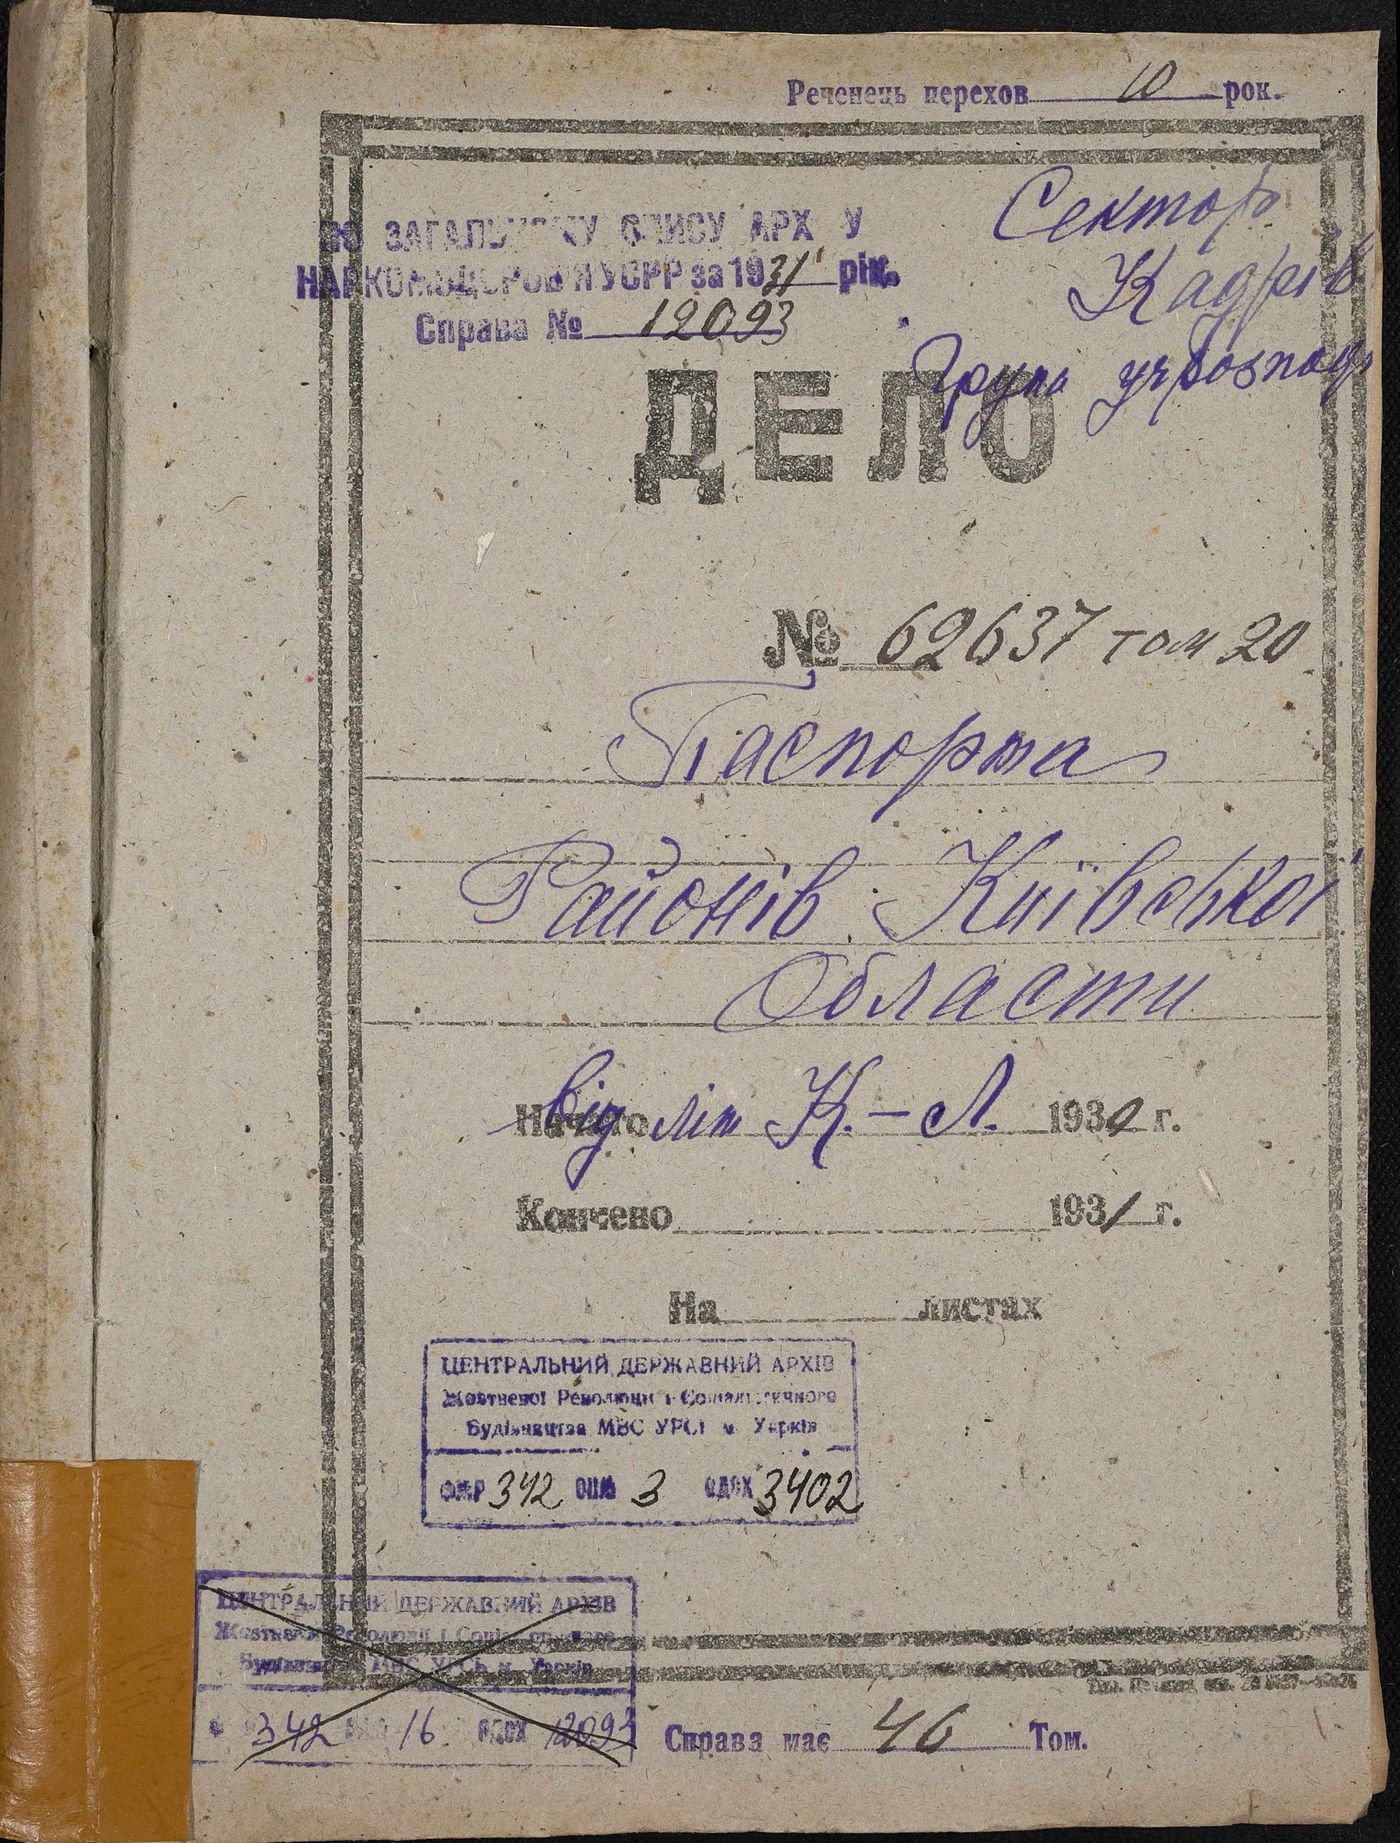 Реченець перехов 10 рок.
ПО ЗАГАЛЬНОМУ ОПИСУ АРХ У
НАРКОМЗДОРОВ'Я УСРР за 1931 рік.
Справа № 12093
Сектор
Кадрів
Група учрозпод
ДЕЛО
№ 62637 том 20
Паспорта
Районів Київської
Области
Начато від літ К.-Л. 1930 г.
Кончено 1931 г.
На листах
ЦЕНТРАЛЬНИЙ ДЕРЖАВНИЙ АРХІВ
Жовтневої Революції і Соціалістичного
Будівництва МВС УРСР м. Харків
ФКР 342 ОПИС 3 ОДОХ 3402
ЦЕНТРАЛЬНИЙ ДЕРЖАВНИЙ АРХІВ
Жовтневої Революції і Соціалістичного
Будівництва МВС УРСР м. Харків
342 16 ОДОХ 12093
Справа має 46 Том.